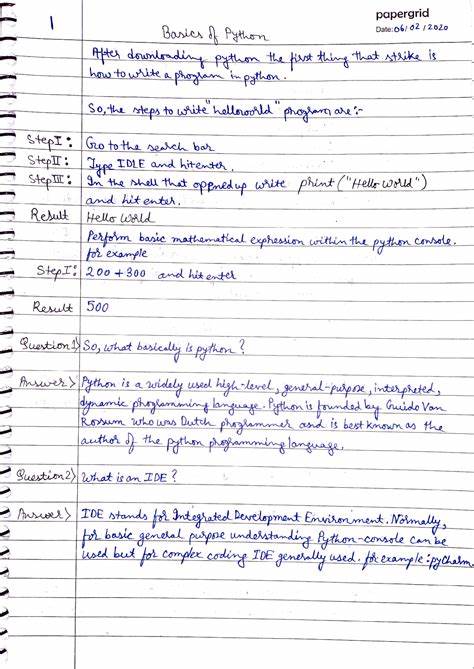 papergrid
1
Date: 06/02/2020
Basics of Python
After downloading python the first thing that strike is
how to write a program in python.
So, the steps to write "helloworld" program are:-
Step I: Go to the search bar
Step II: Type IDLE and hit enter.
Step III: In the shell that oppned up write print ("Hello World")
and hit enter.
Result Hello World
Perform basic mathematical expression within the python console.
for example
Step I: 200 + 300 and hit enter
Result 500
Question 1> So, what basically is python ?
Answer > Python is a widely used high-level, general-purpose, interpreted,
dynamic programming language. Python is founded by Guido Van
Rossum who was Dutch programmer and is best known as the
author of the python programming language.
Question 2> What is an IDE ?
Answer > IDE stands for Integrated Development Environment. Normally,
for basic general purpose understanding Python-console can be
used but for complex coding IDE generally used. for example : pyCharm